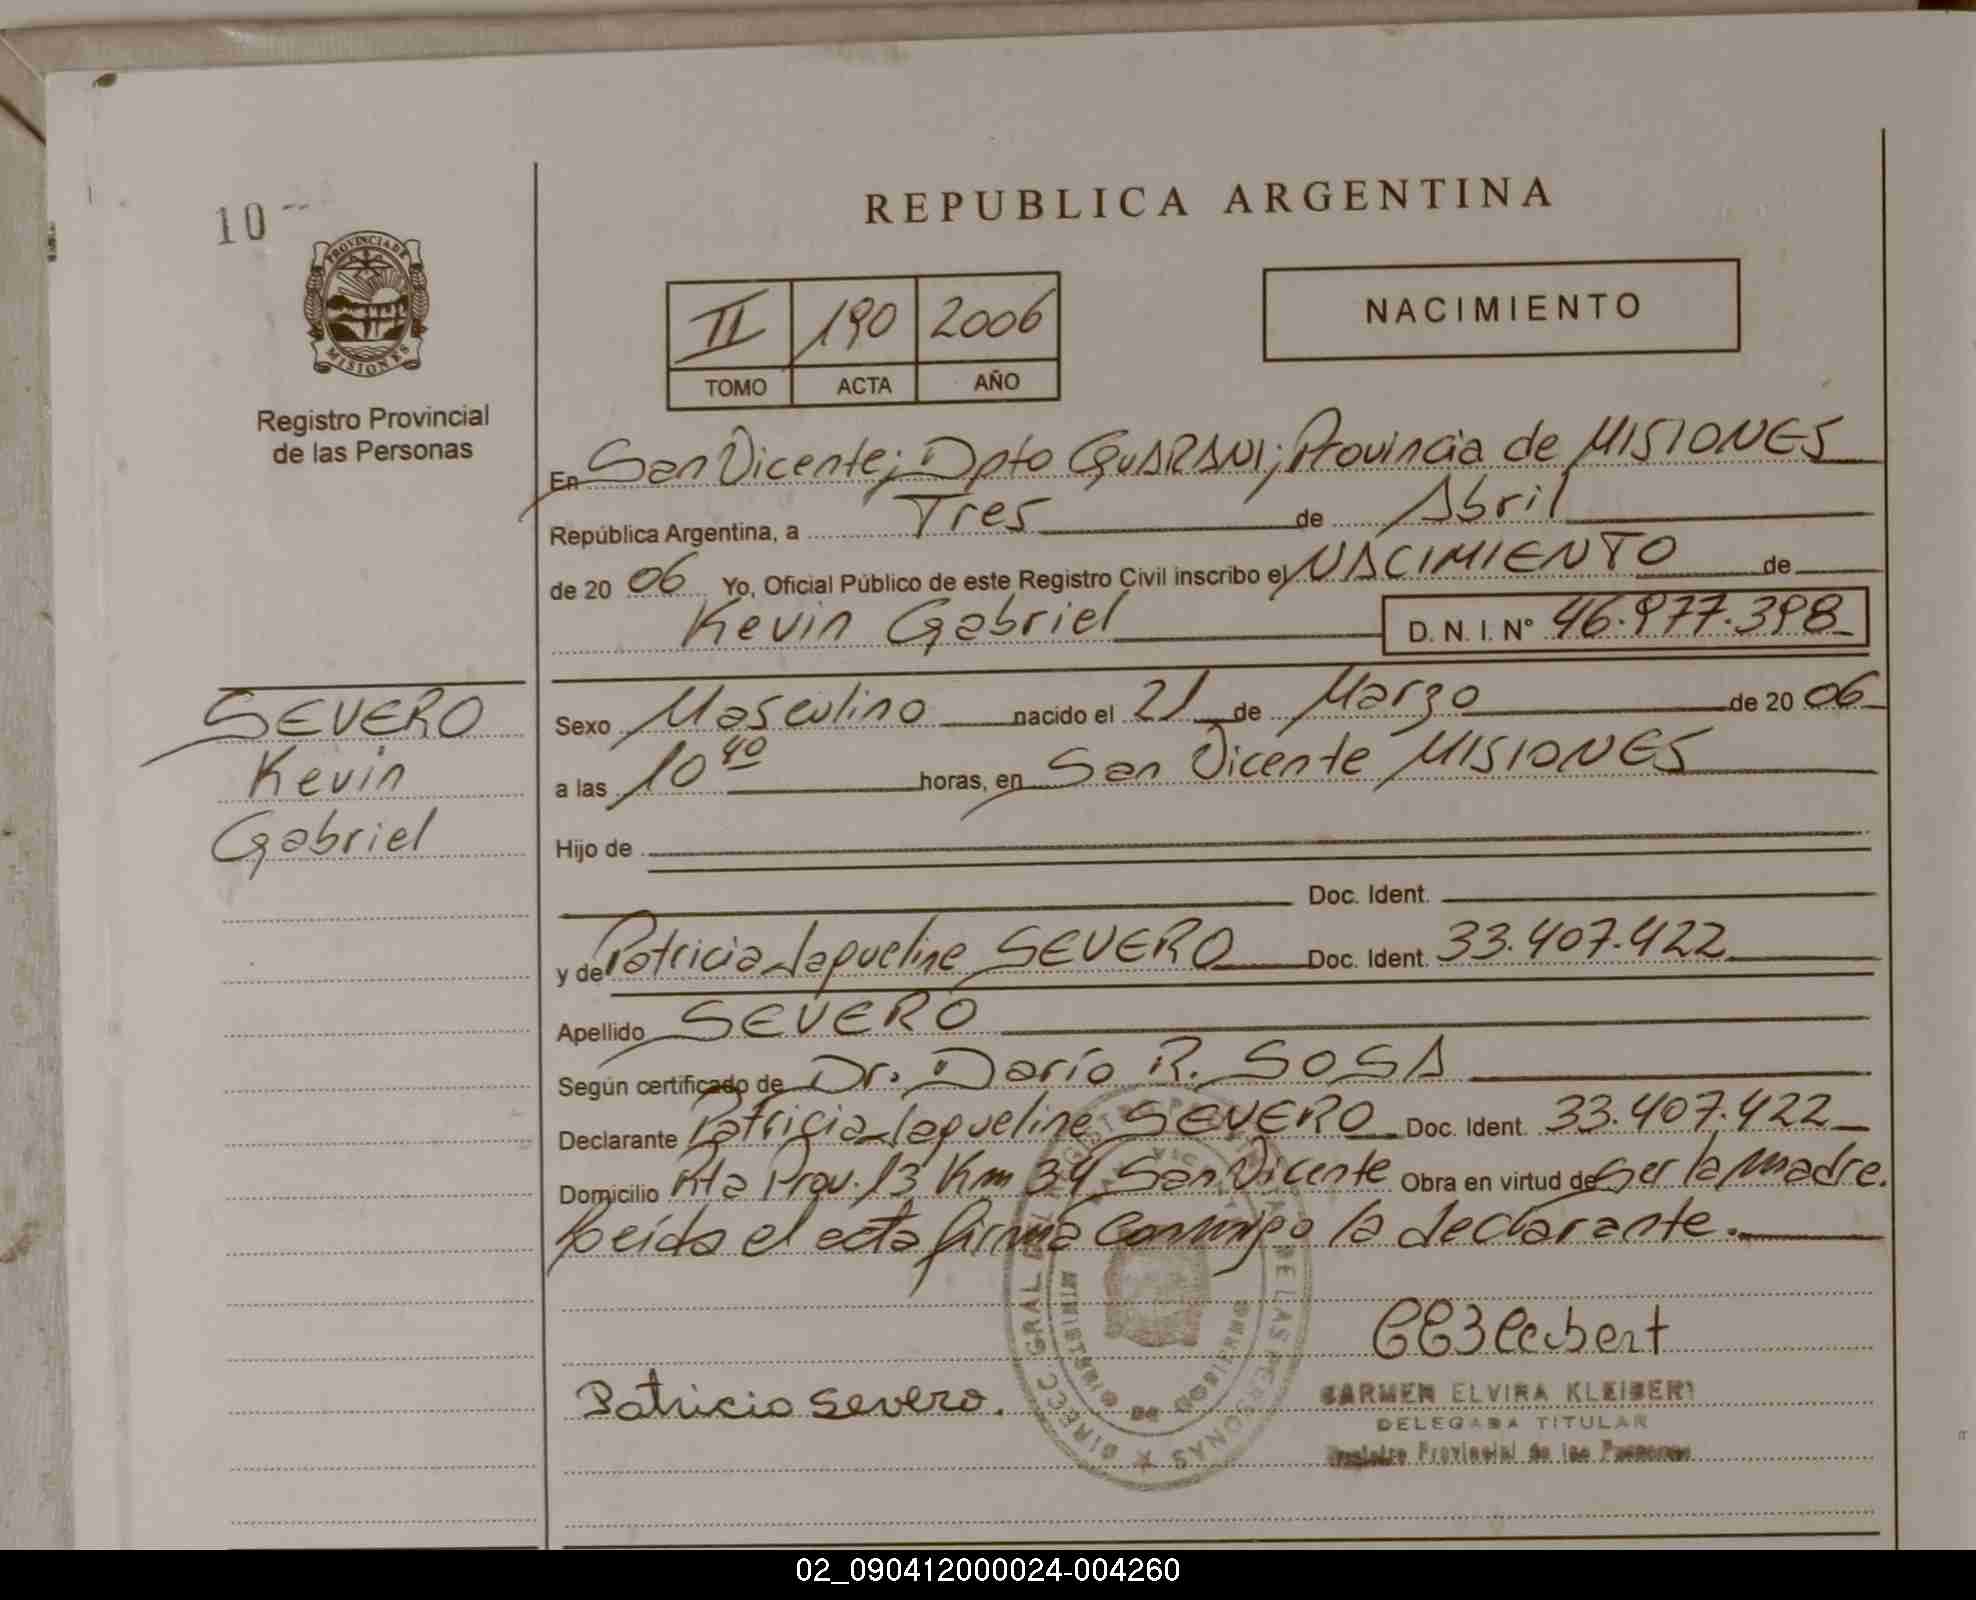 10
PROVINCIA DE
MISIONES
Registro Provincial
de las Personas
REPUBLICA ARGENTINA
II 190 2006
TOMO ACTA AÑO
NACIMIENTO
En San Vicente; Dpto GUARANI; Provincia de MISIONES
República Argentina, a Tres de Abril
de 20 06 Yo, Oficial Público de este Registro Civil inscribo el NACIMIENTO de
Kevin Gabriel D. N. I. N° 46.977.398
SEVERO
Kevin
Gabriel
Sexo Masculino nacido el 21 de Marzo de 20 06
a las 10 40 horas, en San Vicente MISIONES
Hijo de
Doc. Ident.
y de Patricia Jaqueline SEVERO Doc. Ident. 33.407.422
Apellido SEVERO
Según certificado de Dr. Darío R. SOSA
Declarante Patricia Jaqueline SEVERO Doc. Ident. 33.407.422
Domicilio Rta Prov. 13 Km 34 San Vicente Obra en virtud de ser la madre.
Leída el acta firma conmigo la declarante.
Patricia Severo.
CARMEN ELVIRA KLEIBERT
DELEGADA TITULAR
Registro Provincial de las Personas
DIREC. GRAL. DE LAS PERSONAS
02_090412000024-004260